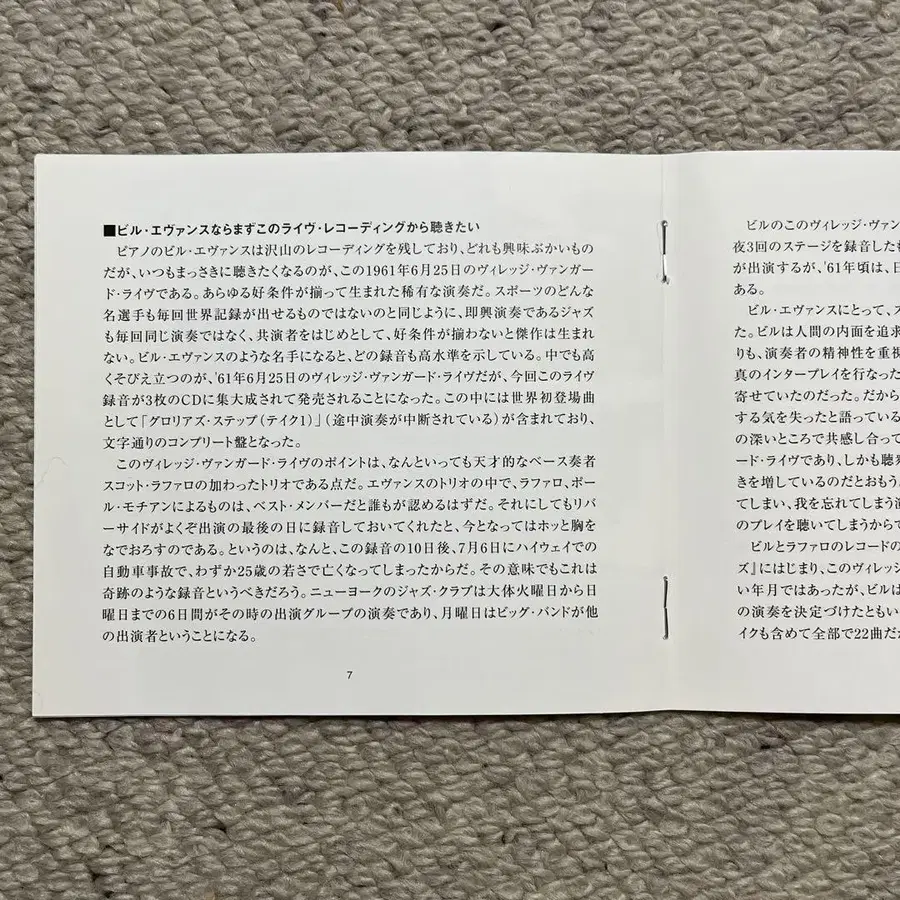 ■ビル・エヴァンスならまずこのライヴ・レコーディングから聴きたい
ピアノのビル・エヴァンスは沢山のレコーディングを残しており、どれも興味ぶかいもの
だが、いつもまっさきに聴きたくなるのが、この1961年6月25日のヴィレッジ・ヴァンガー
ド・ライヴである。あらゆる好条件が揃って生まれた稀有な演奏だ。スポーツのどんな
名選手も毎回世界記録が出せるものではないのと同じように、即興演奏であるジャズ
も毎回同じ演奏ではなく、共演者をはじめとして、好条件が揃わないと傑作は生まれ
ない。ビル・エヴァンスのような名手になると、どの録音も高水準を示している。中でも高
くそびえ立つのが、'61年6月25日のヴィレッジ・ヴァンガード・ライヴだが、今回このライヴ
録音が3枚のCDに集大成されて発売されることになった。この中には世界初登場曲
として「グロリアズ・ステップ(テイク1)」(途中演奏が中断されている)が含まれており、
文字通りのコンプリート盤となった。
このヴィレッジ・ヴァンガード・ライヴのポイントは、なんといっても天才的なベース奏者
スコット・ラファロの加わったトリオである点だ。エヴァンスのトリオの中で、ラファロ、ポー
ル・モチアンによるものは、ベスト・メンバーだと誰もが認めるはずだ。それにしてもリバ
ーサイドがよくぞ出演の最後の日に録音しておいてくれたと、今となってはホッと胸を
なでおろすのである。というのは、なんと、この録音の10日後、7月6日にハイウェイでの
自動車事故で、わずか25歳の若さで亡くなってしまったからだ。その意味でもこれは
奇跡のような録音というべきだろう。ニューヨークのジャズ・クラブは大体火曜日から日
曜日までの6日間がその時の出演グループの演奏であり、月曜日はビッグ・バンドが他
の出演者ということになる。
7
ビルのこのヴィレッジ・ヴァン
夜3回のステージを録音した
が出演するが、'61年頃は、
ある。
ビル・エヴァンスにとって、
た。ビルは人間の内面を追求
りも、演奏者の精神性を重視
真のインタープレイを行なった
寄せていたのだった。だから
する気を失ったと語っている
の深いところで共感し合って
ード・ライヴであり、しかも聴
きを増しているのだとおもう
てしまい、我を忘れてしまう
のプレイを聴いてしまうからで
ビルとラファロのレコードの
ズ』にはじまり、このヴィレッ
い年月ではあったが、ビルは
の演奏を決定づけたともい
イクも含めて全部で22曲だ